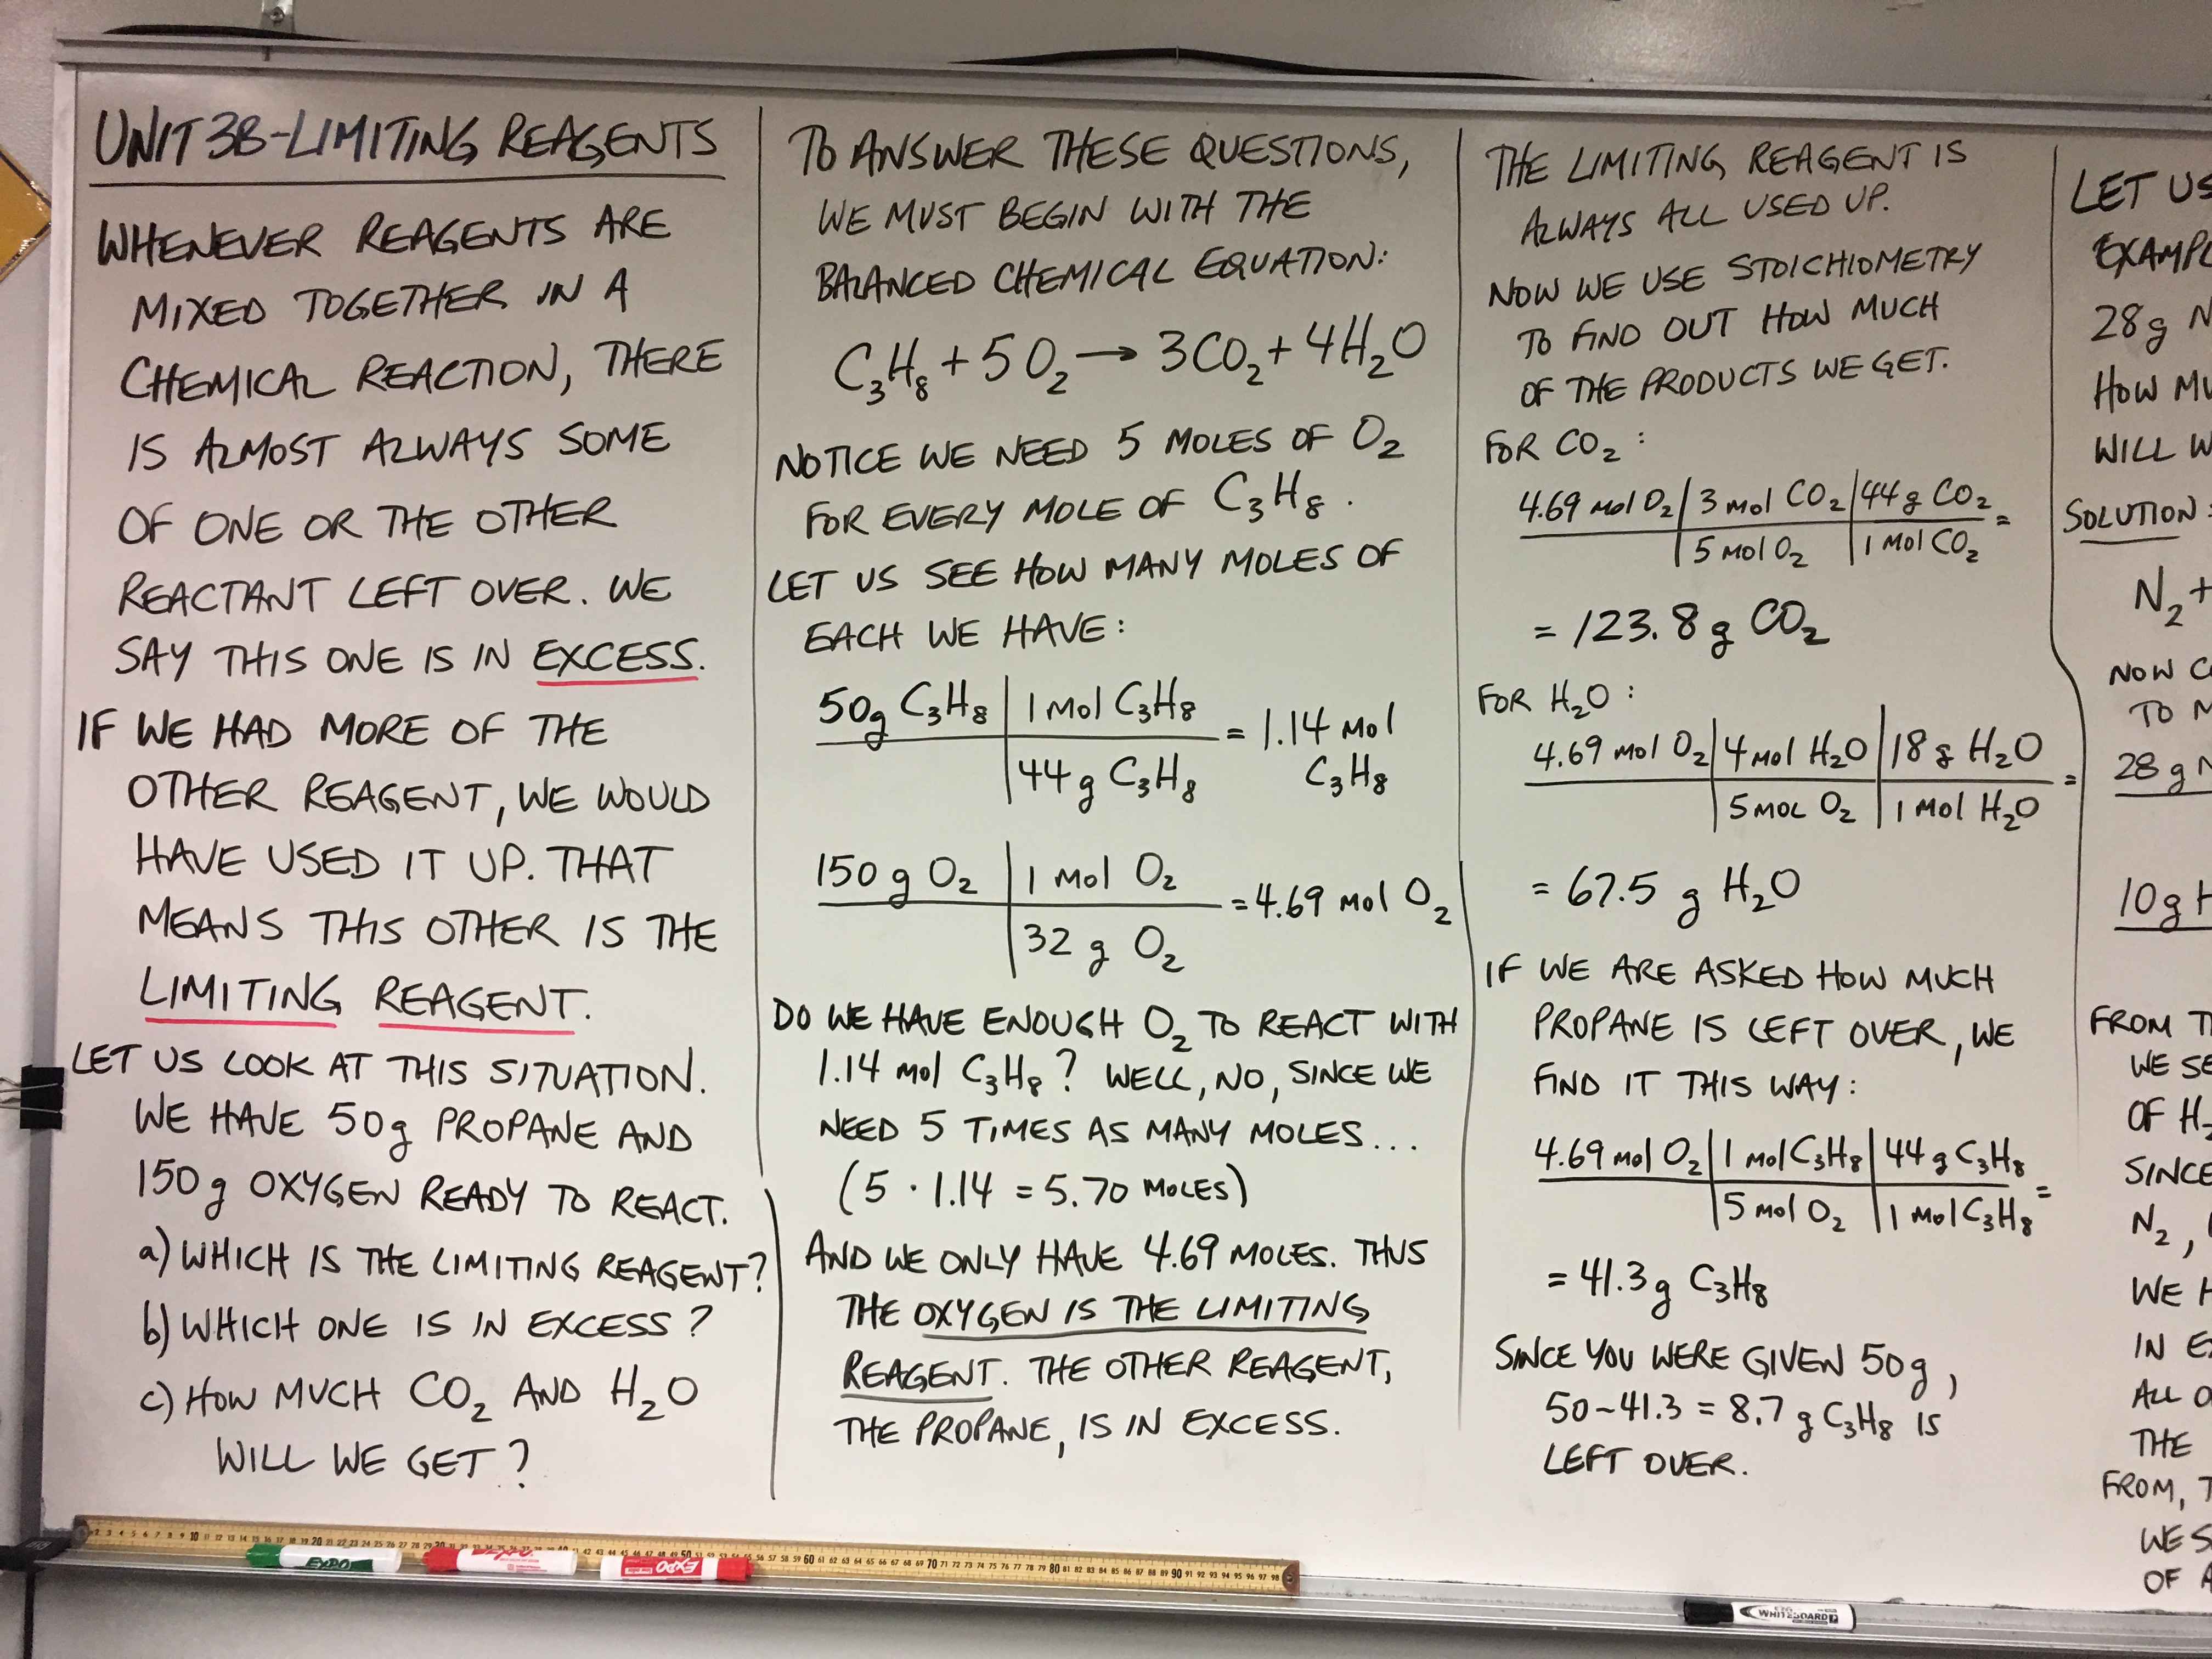 UNIT 3B-LIMITING REAGENTS
WHENEVER REAGENTS ARE
MIXED TOGETHER IN A
CHEMICAL REACTION, THERE
IS ALMOST ALWAYS SOME
OF ONE OR THE OTHER
REACTANT LEFT OVER. WE
SAY THIS ONE IS IN EXCESS.
IF WE HAD MORE OF THE
OTHER REAGENT, WE WOULD
HAVE USED IT UP. THAT
MEANS THIS OTHER IS THE
LIMITING REAGENT.
LET US LOOK AT THIS SITUATION.
WE HAVE 50g PROPANE AND
150g OXYGEN READY TO REACT.
a) WHICH IS THE LIMITING REAGENT?
b) WHICH ONE IS IN EXCESS?
c) HOW MUCH CO₂ AND H₂O
WILL WE GET?
TO ANSWER THESE QUESTIONS,
WE MUST BEGIN WITH THE
BALANCED CHEMICAL EQUATION:
C₃H₈ + 5O₂ → 3CO₂ + 4H₂O
NOTICE WE NEED 5 MOLES OF O₂
FOR EVERY MOLE OF C₃H₈.
LET US SEE HOW MANY MOLES OF
EACH WE HAVE:
50g C₃H₈ | 1 mol C₃H₈ = 1.14 mol
44g C₃H₈ C₃H₈
150g O₂ | 1 mol O₂ = 4.69 mol O₂
32 g O₂
DO WE HAVE ENOUGH O₂ TO REACT WITH
1.14 mol C₃H₈? WELL, NO, SINCE WE
NEED 5 TIMES AS MANY MOLES...
(5 · 1.14 = 5.70 MOLES)
AND WE ONLY HAVE 4.69 MOLES. THUS
THE OXYGEN IS THE LIMITING
REAGENT. THE OTHER REAGENT,
THE PROPANE, IS IN EXCESS.
THE LIMITING REAGENT IS
ALWAYS ALL USED UP.
NOW WE USE STOICHIOMETRY
TO FIND OUT HOW MUCH
OF THE PRODUCTS WE GET.
FOR CO₂:
4.69 mol O₂ | 3 mol CO₂ | 44g CO₂ =
5 mol O₂ | 1 mol CO₂
= 123.8g CO₂
FOR H₂O:
4.69 mol O₂ | 4 mol H₂O | 18g H₂O =
5 MOL O₂ | 1 mol H₂O
= 67.5 g H₂O
IF WE ARE ASKED HOW MUCH
PROPANE IS LEFT OVER, WE
FIND IT THIS WAY:
4.69 mol O₂ | 1 mol C₃H₈ | 44g C₃H₈ =
5 mol O₂ | 1 mol C₃H₈
= 41.3g C₃H₈
SINCE YOU WERE GIVEN 50g,
50-41.3 = 8.7g C₃H₈ IS
LEFT OVER.
LET US
28g N
HOW
WILL
SOLUTION:
N₂ +
NOW
TO
28g N
10g H
FROM
WE
OF H₂
SINCE
N₂,
WE
IN
ALL
THE
FROM,
WE
OF
EXPO
EXPO
WHITEBOARD